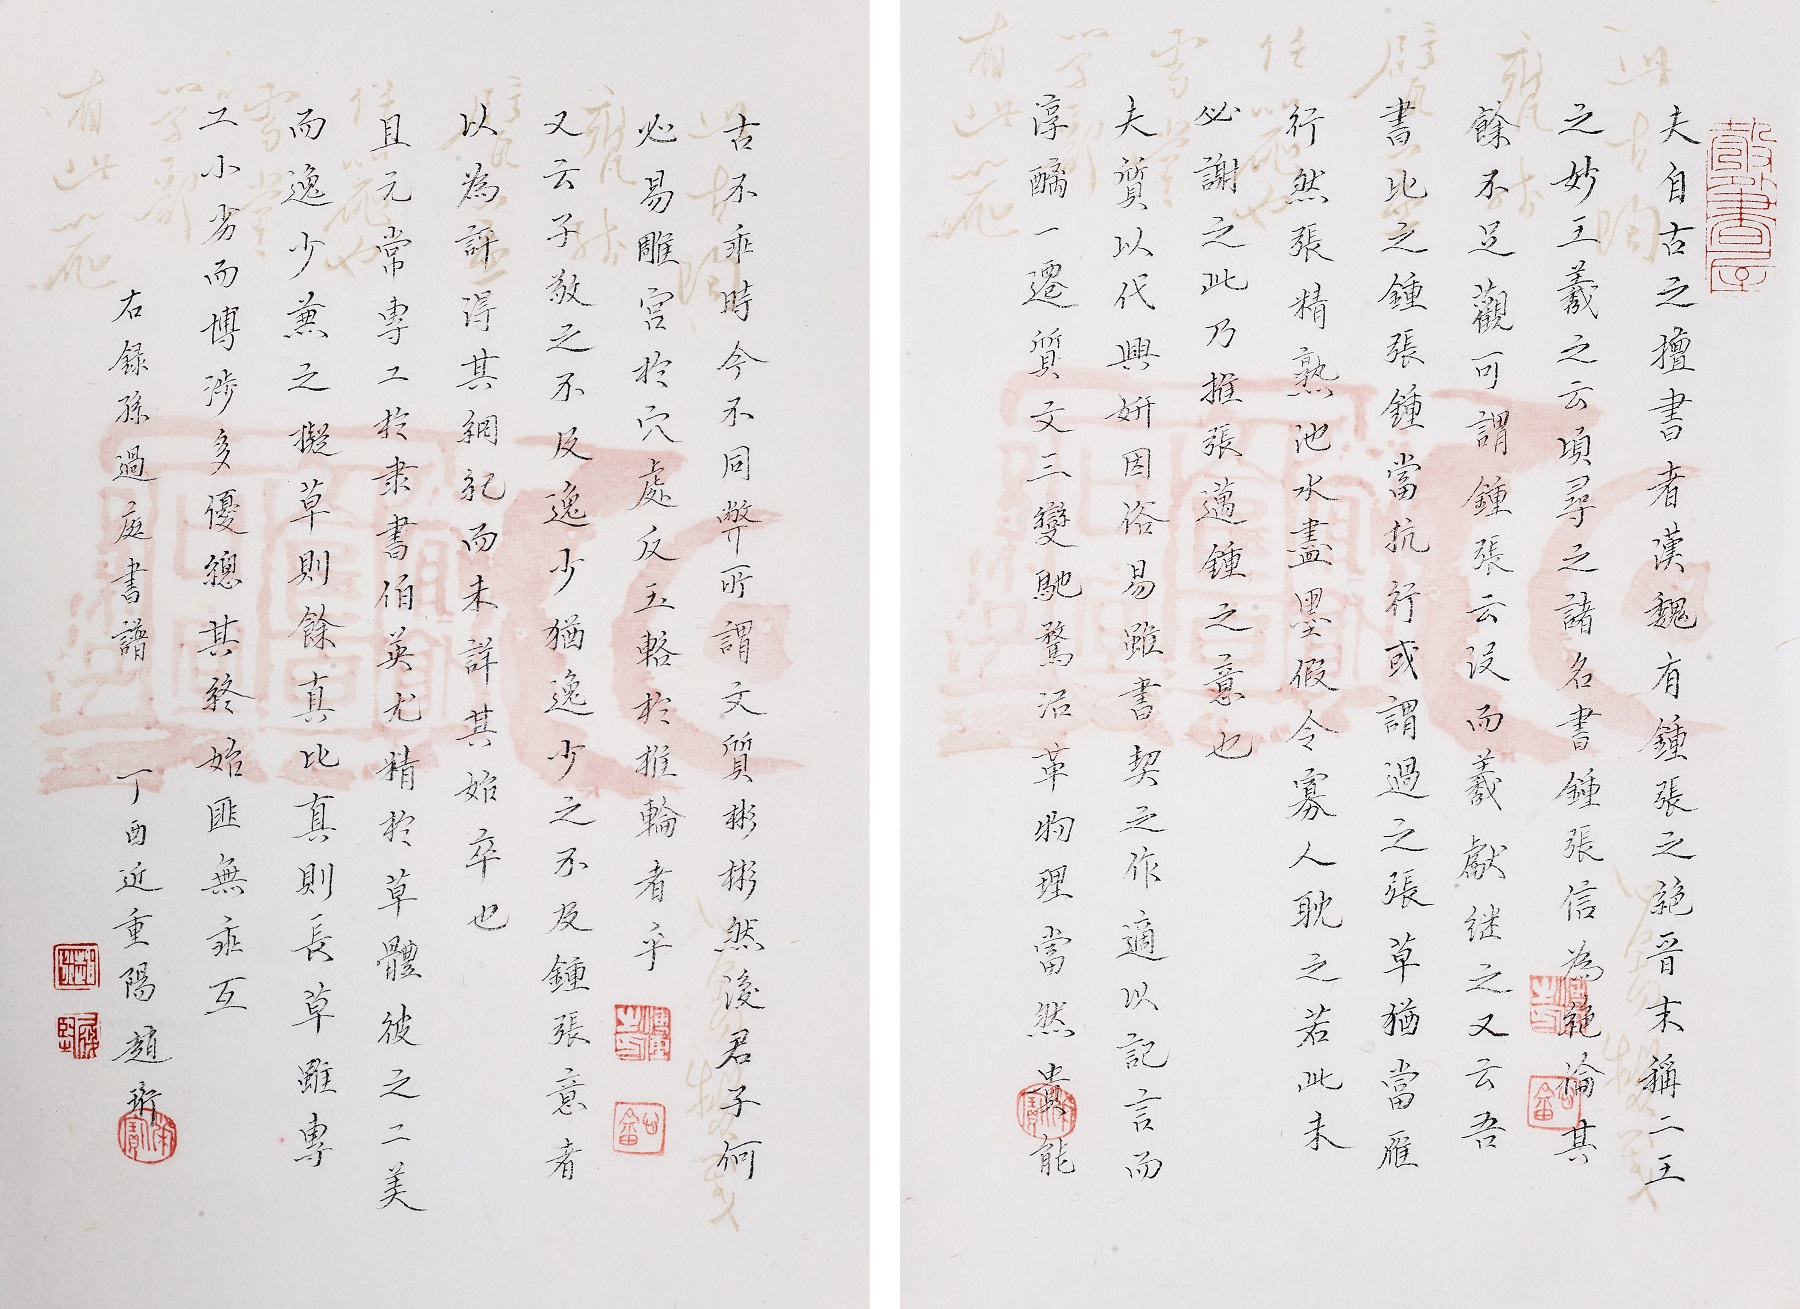 夫自古之擅書者漢魏有鍾張之絕晋末稱二王
之妙王羲之云頃尋之諸名書鍾張信為絕倫其
餘不足觀可謂鍾張云没而羲獻继之又云吾
書比之鍾張鍾當抗行或謂過之張草猶當雁
行然張精熟池水盡墨假令寡人耽之若此未
必謝之此乃推張邁鍾之意也
夫質以代興妍因俗易雖書契之作適以記言而
淳醨一遷質文三變馳騖沿革物理當然貴能
古不乖時今不同弊所謂文質彬彬然後君子何
必易雕宮於穴處反玉輅於椎輪者乎
又云子敬之不及逸少猶逸少之不及鍾張意者
以為評得其綱紀而未詳其始卒也
且元常專工於隸書伯英尤精於草體彼之二美
而逸少兼之擬草則餘真比真則長草雖專
工小劣而博涉多優總其終始匪無乖互
右録孫過庭書譜 丁酉近重陽趙珩